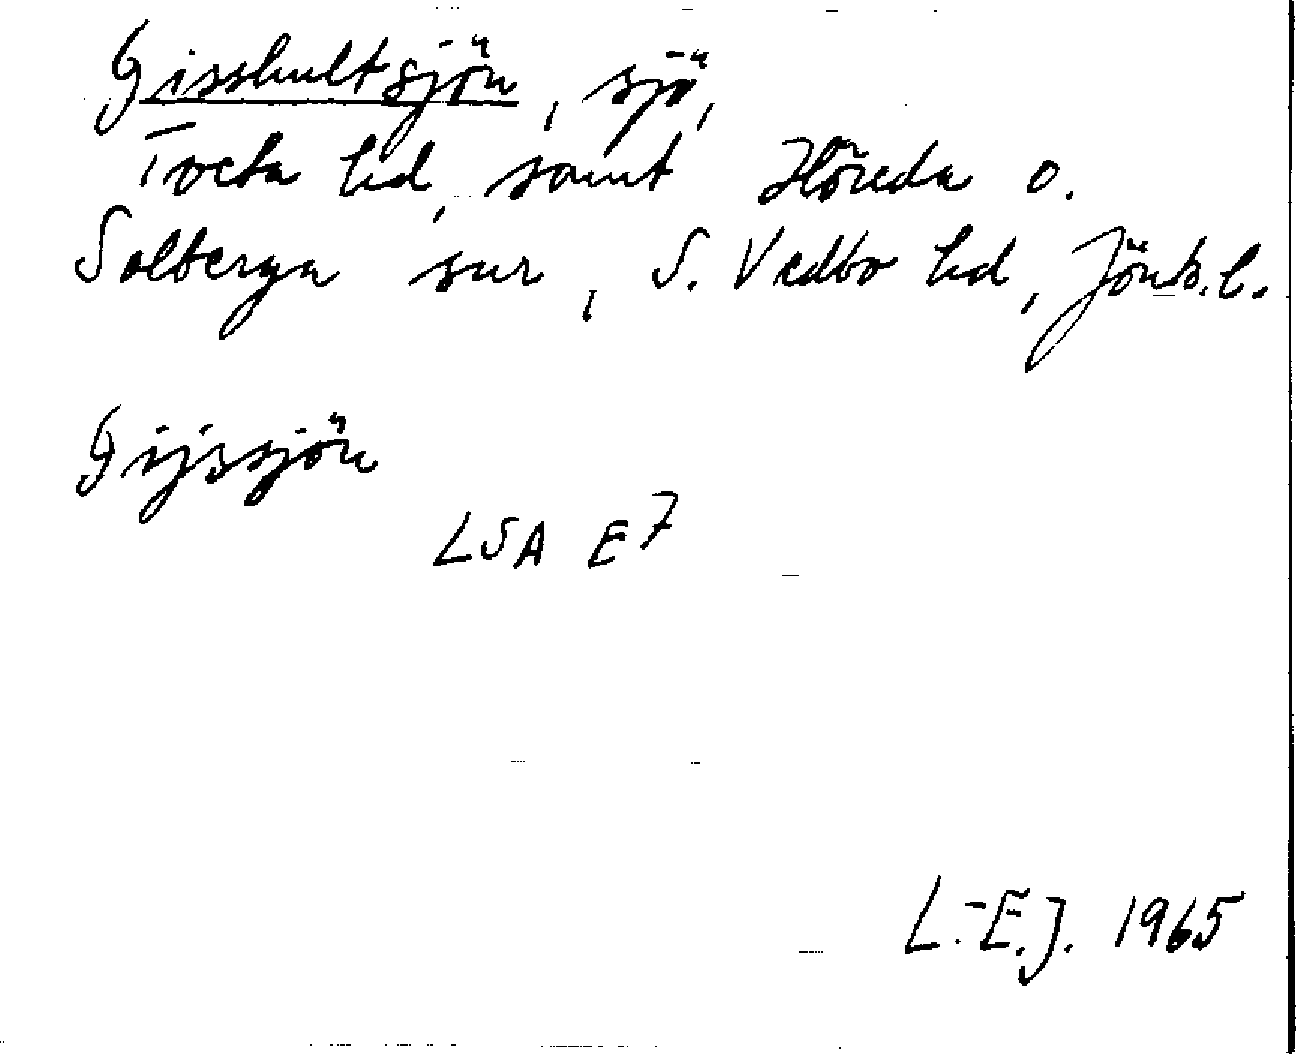 Gisshultsjön, sjö,
Tveta hd, samt Höreda o.
Solberga snr, S. Vedbo hd, Jönk.l.
Gijssjön
LSA E7
L.-E.J. 1965